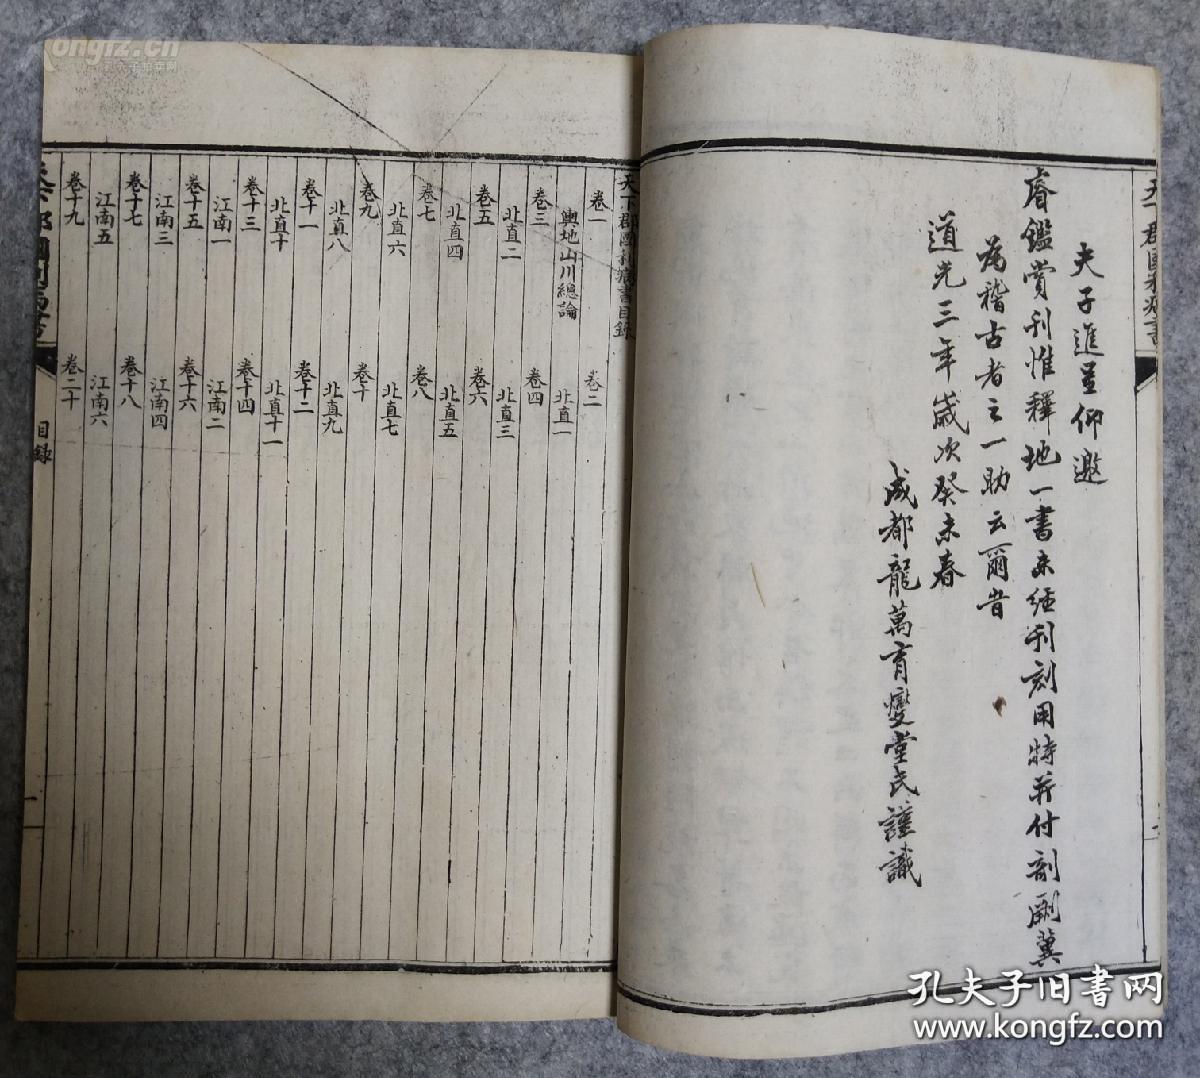 夫子進呈仰邀
睿鑑賞刊惟釋地一書未經刊刻用特并付剞劂冀
為稽古者之一助云爾旹
道光三年歲次癸未春
成都龍萬育燮堂氏謹識
天下郡國利病書目錄
卷一 卷二
輿地山川總論 北直一
卷三 卷四
北直二 北直三
卷五 卷六
北直四 北直五
卷七 卷八
北直六 北直七
卷九 卷十
北直八 北直九
卷十一 卷十二
北直十 北直十一
卷十三 卷十四
江南一 江南二
卷十五 卷十六
江南三 江南四
卷十七 卷十八
江南五 江南六
卷十九 卷二十
目錄
孔夫子旧书网
www.kongfz.com